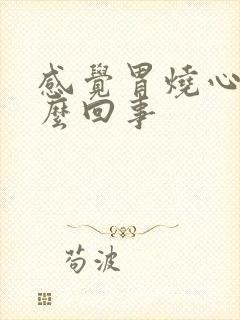 感覺胃燒心
麼回事
苟波